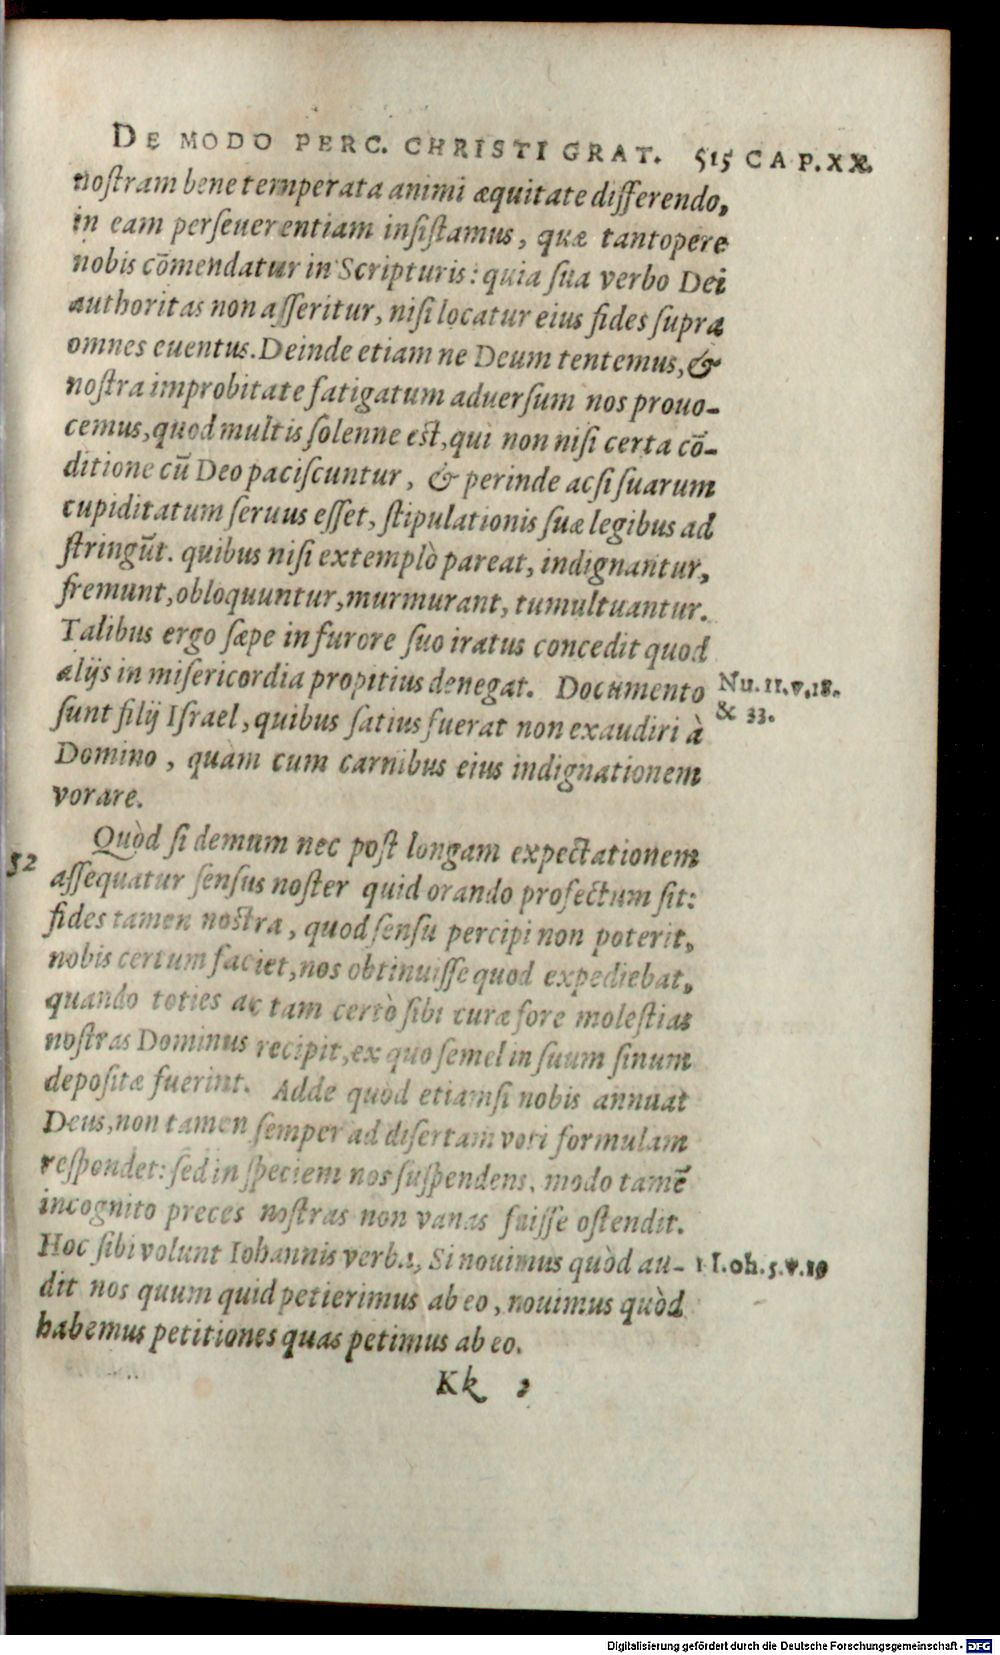 DE MODO PERC. CHRISTI GRAT. 515 CAP. XX.
noſtram bene temperata animi æquitate differendo,
in eam perſeuerentiam inſiſtamus, quæ tantopere
nobis cõmendatur in Scripturis: quia ſua verbo Dei
authoritas non aſſeritur, niſi locatur eius fides ſupra
omnes euentus. Deinde etiam ne Deum tentemus, &
noſtra improbitate fatigatum aduerſum nos prouo-
cemus, quod multis ſolenne est, qui non niſi certa cõ-
ditione cũ Deo paciſcuntur, & perinde acſi ſuarum
cupiditatum ſeruus eſſet, ſtipulationis ſuæ legibus ad
ſtringũt. quibus niſi extemplò pareat, indignantur,
fremunt, obloquuntur, murmurant, tumultuantur.
Talibus ergo ſæpe in furore ſuo iratus concedit quod
alijs in miſericordia propitius denegat. Documento
Nu. 11. v. 18.
& 33.
ſunt filij Iſrael, quibus ſatius fuerat non exaudiri à
Domino, quàm cum carnibus eius indignationem
vorare.
52
Quòd ſi demum nec poſt longam expectationem
aſſequatur ſenſus noſter quid orando profectum ſit:
fides tamen nostra, quod ſenſu percipi non poterit,
nobis certum faciet, nos obtinuiſſe quod expediebat,
quando toties ac tam certò ſibi curæ fore moleſtias
noſtras Dominus recipit, ex quo ſemel in ſuum ſinum
depoſitæ fuerint. Adde quòd etiamſi nobis annuat
Deus, non tamen ſemper ad diſertam voti formulam
reſpondet: ſed in ſpeciem nos ſuſpendens, modo tamẽ
incognito preces noſtras non vanas fuiſſe oſtendit.
Hoc ſibi volunt Iohannis verba, Si nouimus quòd au-
1 I.oh. 5. v. 19
dit nos quum quid petierimus ab eo, nouimus quòd
habemus petitiones quas petimus ab eo.
Kk 2
Digitalisierung gefördert durch die Deutsche Forschungsgemeinschaft - DFG